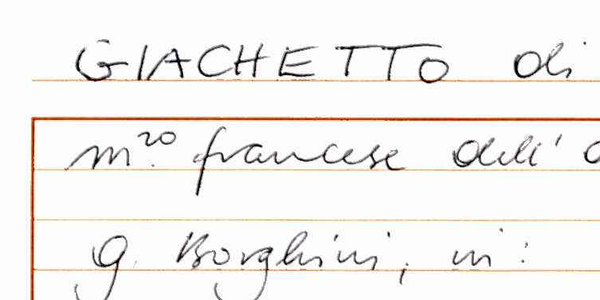 GIACHETTO di
m.zo francese dell'
G. Borghini, in: